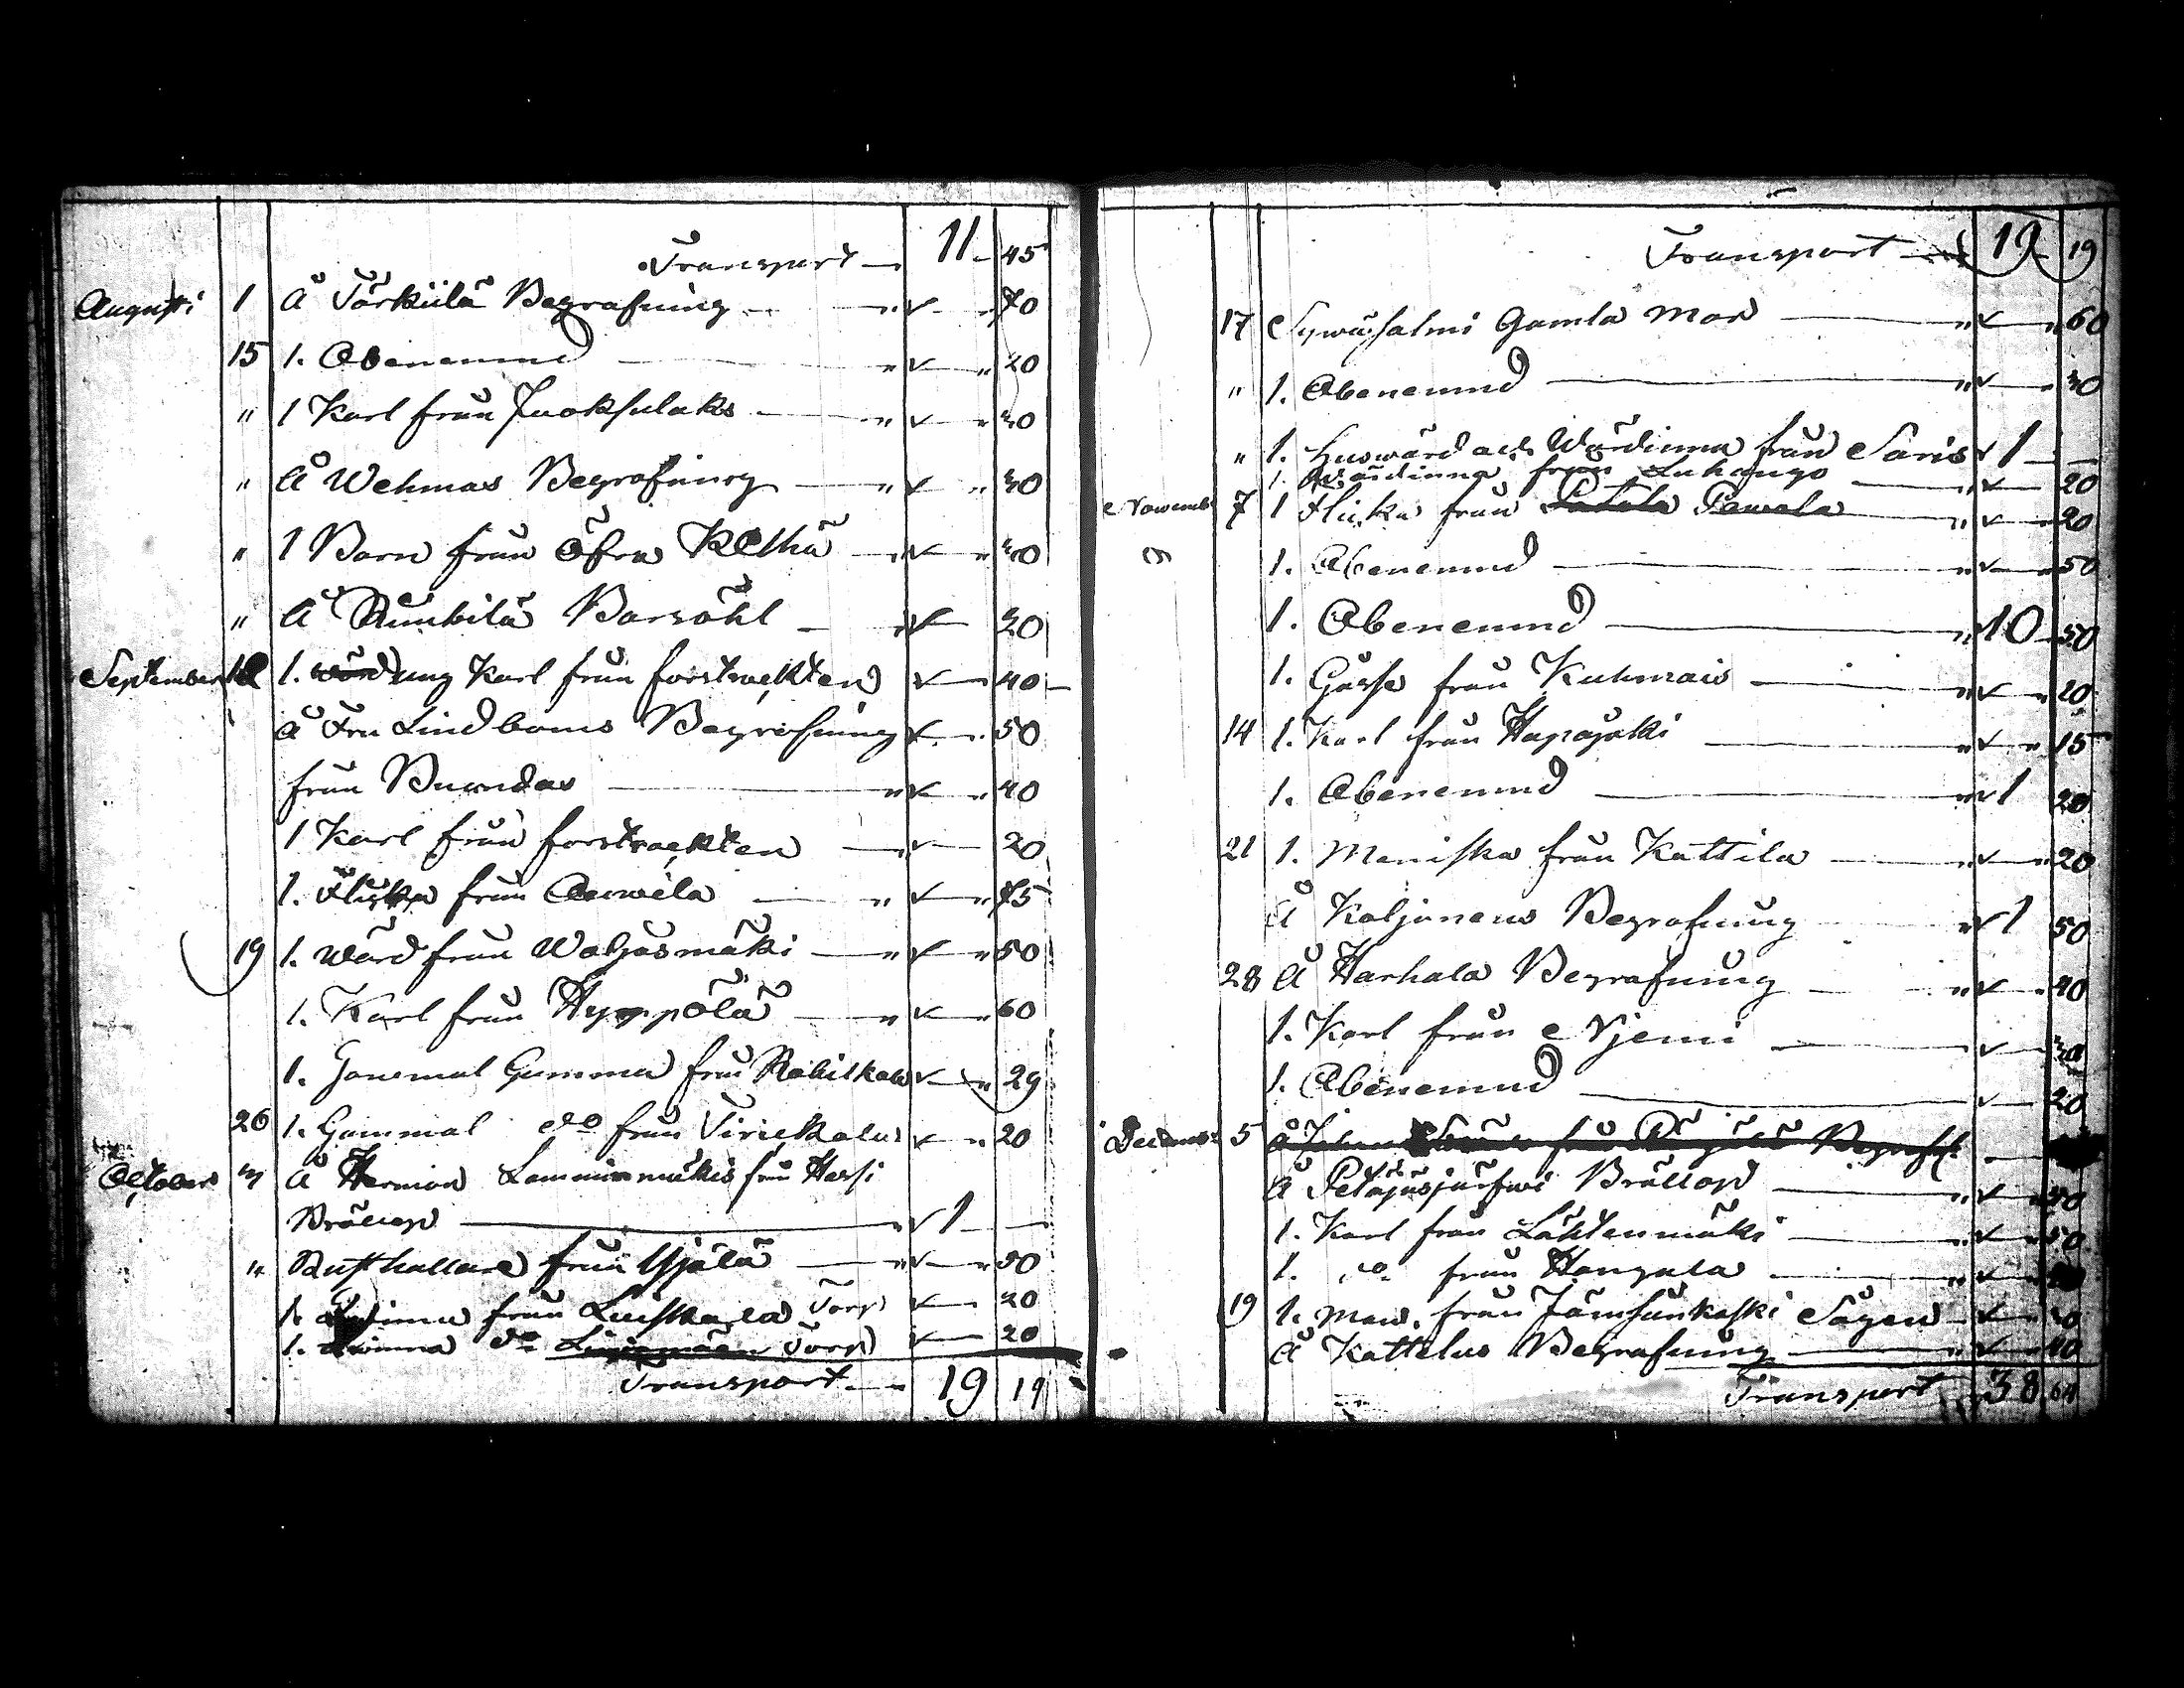 Transport — 11 - 45
Augusti 1 Å Törkiilä Begrafning — " " 70
15 1. Obenemnd — " " 20
" 1 Karl från Juoksulaks — " " 30
" Å Wehmas Begrafning — " " 30
" 1 Barn från Öfra — " " 30
" Å Barsöhl — " 30
September 1. ung Karl från forstraekten — 40 —
Å Fru Lindboms Begrafning — 50
från — " " 40
1 Karl från forstraekten — " 20
1. Flicka från — " " 75
19 1. Wärd från Waljasmäki — " " 50
1. Karl från Hyppölä — " " 60
1. Gammal Gumma från — " 29
26 1. Gammal do från — " 20
October 3 Å Herman Lamminmäkis från Harsi
Bröllop — " 1 —
" Rusthållare från — " " 50
1. från Luiskala Torp — 20
1. do Torp — 20
Transport — 19 19
Transport — 19 19
17 Sywäsalmi Gamla Mor — " " 60
" 1. Obenemnd — " " 30
" 1. Huswärd och Wärdinna från Saris 1 —
1. Wärdinna från Luhango — " 20
Novemb 7 1 Flicka från Pawola — " 20
1. Obenemnd — " " 50
1. Obenemnd — " 10 50
1. Gåsse från Kuhmais — " " 20
14 1. Karl från Hapajäki — " " 15
1. Obenemnd — " 1 20
21 1. Meniska från Kattila — " " 20
Å Kaljanens Begrafning — " 1 50
28 Å Harhala Begrafning — " " 40
1. Karl från Njemi — "
1. Obenemnd — 20
Decemb: 5
Å Petäjäsjärfwi Bröllop — " "
1. Karl från Lähtenmäki — " " 50
1. do från Hangala — " "
19 1. Man. från Jämsänkoski Sågen —
Å Kattelus Begrafning — " " 40
Transport — 38 64